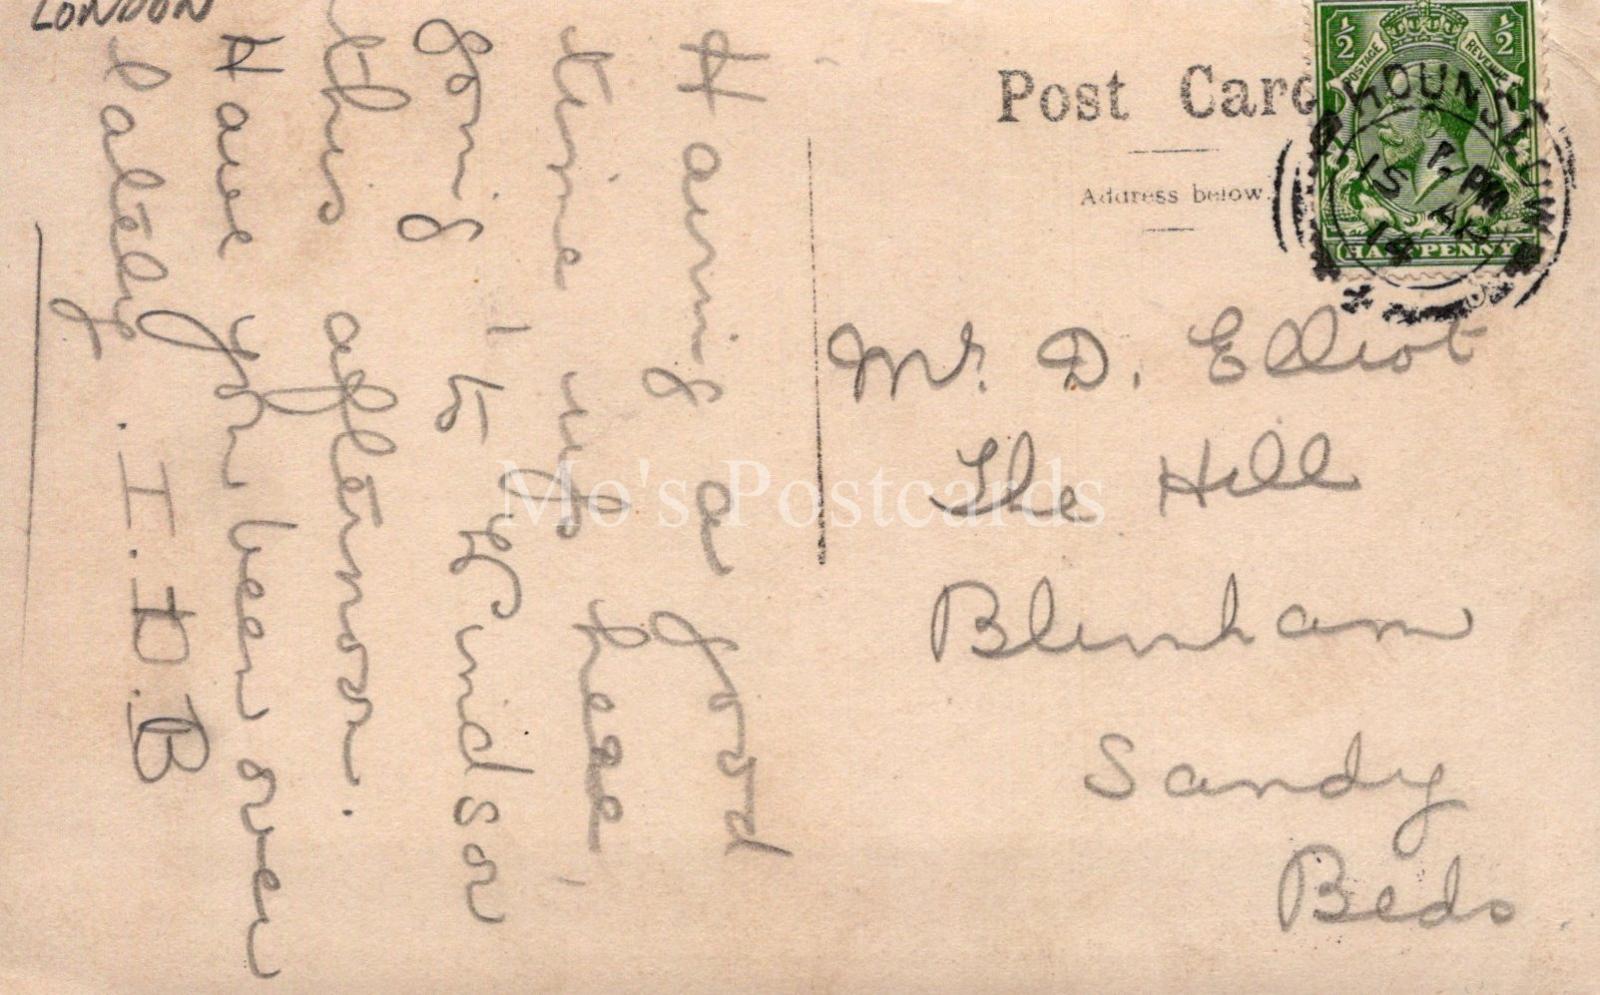 LONDON
Having a good
time up here,
going to Windsor
this afternoon.
Have you been over
lately. I. D. B
Post Card
Address below.
½ ½
POSTAGE REVENUE
HALFPENNY
HOUNSLOW
PM
15 AP
14
Mr. D. Elliot
The Hill
Blunham
Sandy
Beds
Mo's Postcards